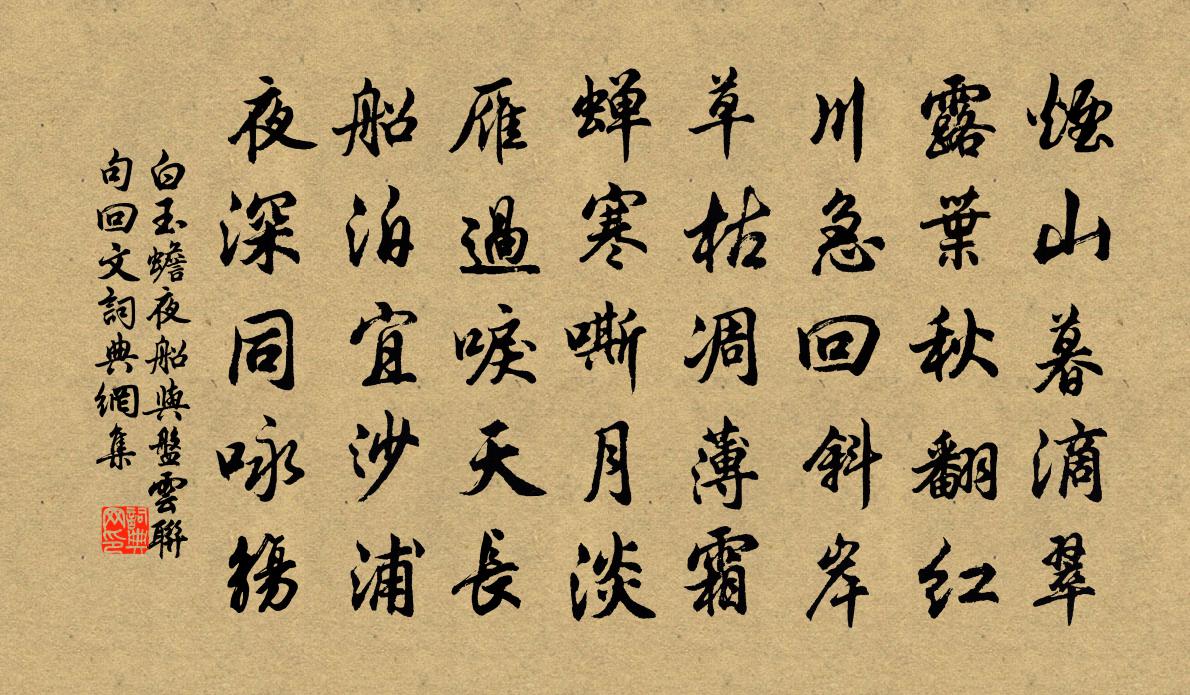 煙山暮滴翠
露葉秋翻红
川急回斜岸
草枯凋薄霜
蝉寒嘶月淡
雁過唳天長
船泊宜沙浦
夜深同咏觴
白玉蟾夜船與盤雲聯
句回文詞典網集
詞典
网印